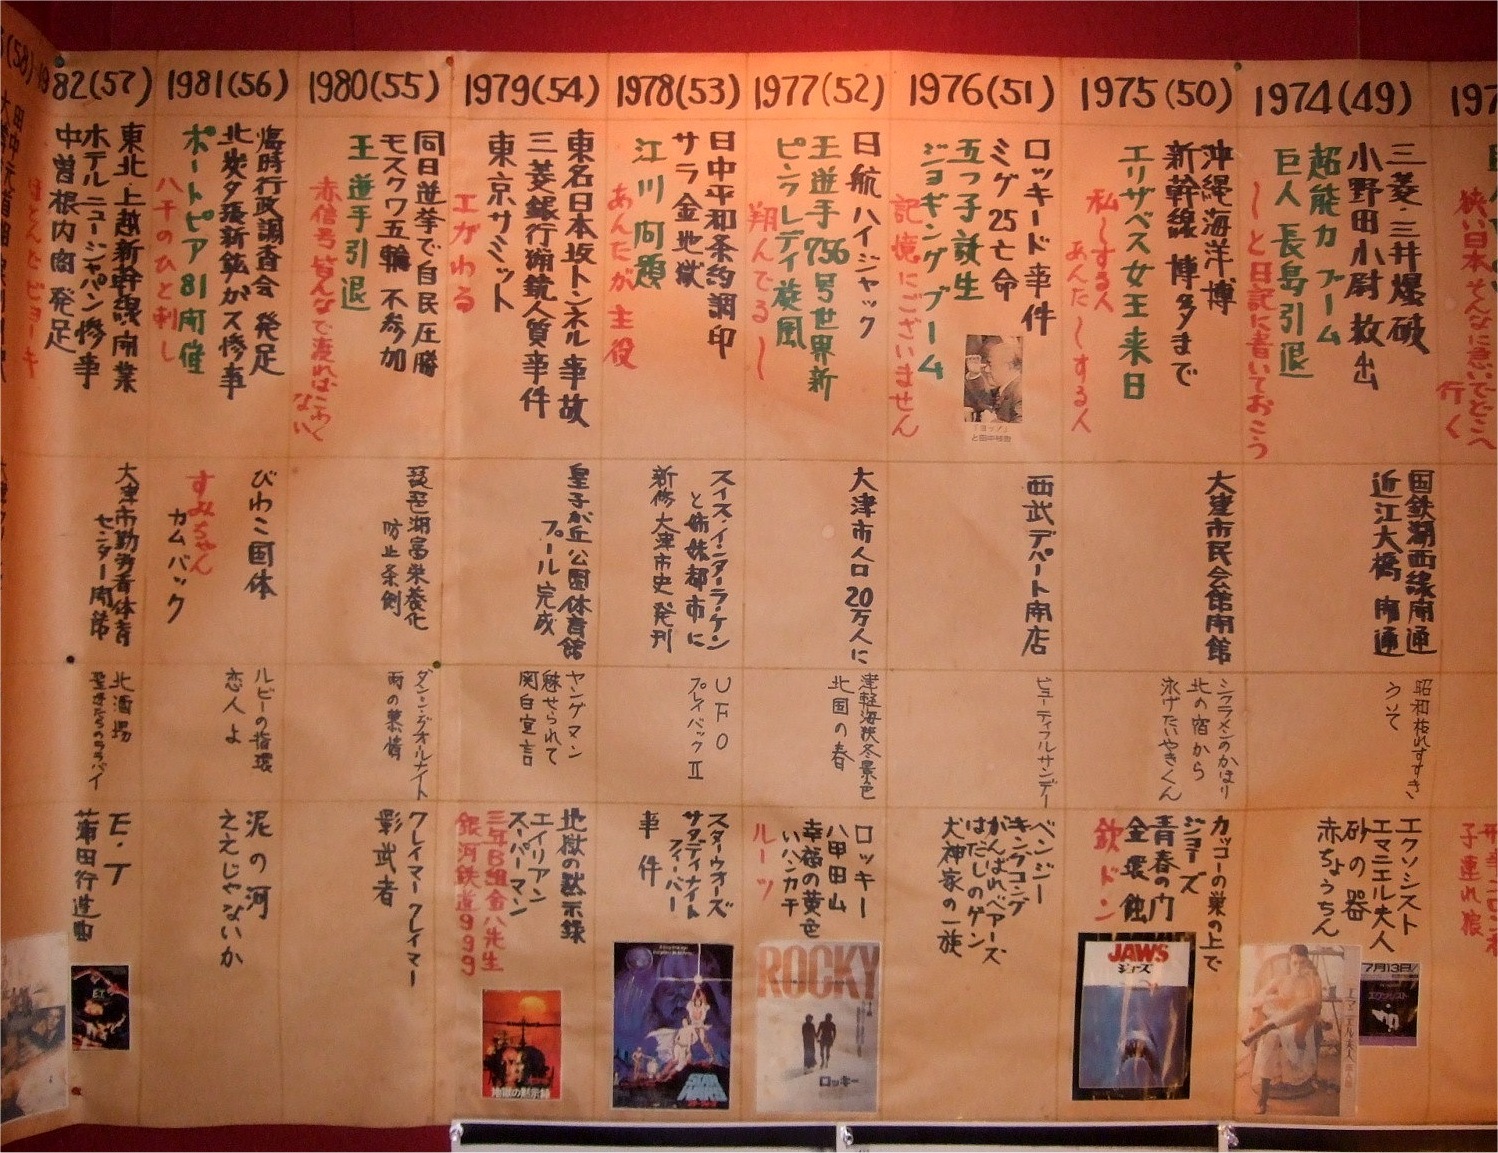 狭い日本 そんなに急いでどこへ
行く
子連れ狼
1974(49)
三菱・三井爆破
小野田少尉 救出
超能力ブーム
巨人 長島引退
〜と日記に書いておこう
国鉄湖西線開通
近江大橋 開通
昭和枯れすすき
うそ
エクソシスト
エマニエル夫人
砂の器
赤ちょうちん
7月13日
エクソシスト
エマニエル夫人
1975(50)
沖縄海洋博
新幹線 博多まで
エリザベス女王来日
私〜する人
あんた〜する人
大津市民会館開館
シクラメンのかほり
北の宿から
泳げたいやきくん
カッコーの巣の上で
ジョーズ
青春の門
金環蝕
欽ドン
JAWS
ジョーズ
1976(51)
ロッキード事件
ミグ25亡命
五つ子誕生
ジョギングブーム
記憶にございません
「ヨッシャ」
と田中首相
西武デパート開店
ビューティフルサンデー
ベンジー
キングコング
がんばれベアーズ
はだしのゲン
犬神家の一族
1977(52)
日航ハイジャック
王選手756号世界新
ピンクレディ旋風
翔んでる〜
大津市人口20万人に
津軽海峡冬景色
北国の春
ロッキー
八甲田山
幸福の黄色
いハンカチ
ルーツ
ROCKY
ロッキー
1978(53)
日中平和条約調印
サラ金地獄
江川問題
あんたが主役
スイス・インターラーケン
と姉妹都市に
新修 大津市史 発刊
UFO
プレイバックⅡ
スターウォーズ
サタデイナイト
フィーバー
事件
STAR WARS
1979(54)
東名日本坂トンネル事故
三菱銀行猟銃人質事件
東京サミット
エガわる
皇子が丘公園体育館
プール完成
ヤングマン
魅せられて
関白宣言
地獄の黙示録
エイリアン
スーパーマン
三年B組金八先生
銀河鉄道999
地獄の黙示録
1980(55)
同日選挙で自民圧勝
モスクワ五輪 不参加
王選手引退
赤信号皆んなで渡ればこわく
ない
琵琶湖富栄養化
防止条例
ダンシングオールナイト
雨の慕情
クレイマークレイマー
影武者
1981(56)
臨時行政調査会発足
北炭夕張新鉱ガス惨事
ポートピア81開催
ハチのひと刺し
びわこ国体
すみちゃん
カムバック
ルビーの指環
恋人よ
泥の河
ええじゃないか
82(57)
東北上越新幹線開業
ホテルニュージャパン惨事
中曽根内閣 発足
ほとんどビョーキ
大津市勤労者体育
センター開館
北酒場
聖母たちのララバイ
E・T
蒲田行進曲